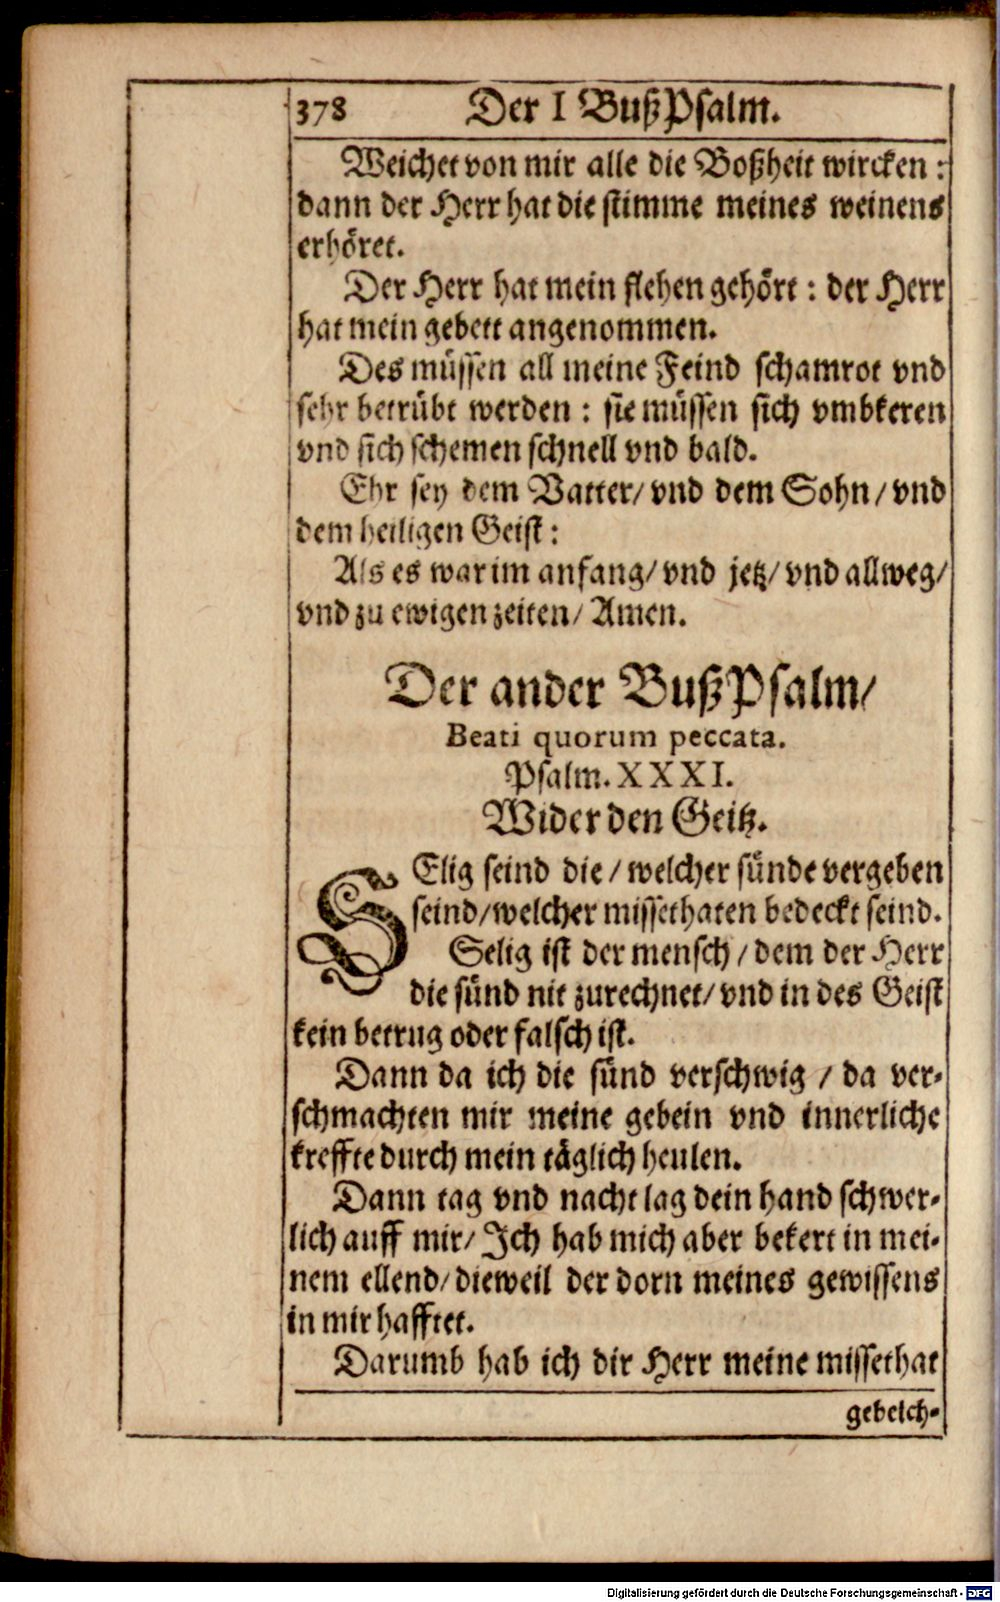 378 Der I BußPsalm.
Weichet von mir alle die Boßheit wircken:
dann der Herr hat die stimme meines weinens
erhöret.
Der Herr hat mein flehen gehört: der Herr
hat mein gebett angenommen.
Des müssen all meine Feind schamrot vnd
sehr betrübt werden: sie müssen sich vmbkeren
vnd sich schemen schnell vnd bald.
Ehr sey dem Vatter/ vnd dem Sohn/ vnd
dem heiligen Geist:
Als es war im anfang/ vnd jetz/ vnd allweg/
vnd zu ewigen zeiten/ Amen.
Der ander BußPsalm/
Beati quorum peccata.
Psalm. XXXI.
Wider den Geitz.
SElig seind die/ welcher sünde vergeben
seind/ welcher missethaten bedeckt seind.
Selig ist der mensch/ dem der Herr
die sünd nit zurechnet/ vnd in des Geist
kein betrug oder falsch ist.
Dann da ich die sünd verschwig/ da ver-
schmachten mir meine gebein vnd innerliche
kreffte durch mein täglich heulen.
Dann tag vnd nacht lag dein hand schwer-
lich auff mir/ Ich hab mich aber bekert in mei-
nem ellend/ dieweil der dorn meines gewissens
in mir hafftet.
Darumb hab ich dir Herr meine missethat
gebeich-
Digitalisierung gefördert durch die Deutsche Forschungsgemeinschaft - DFG